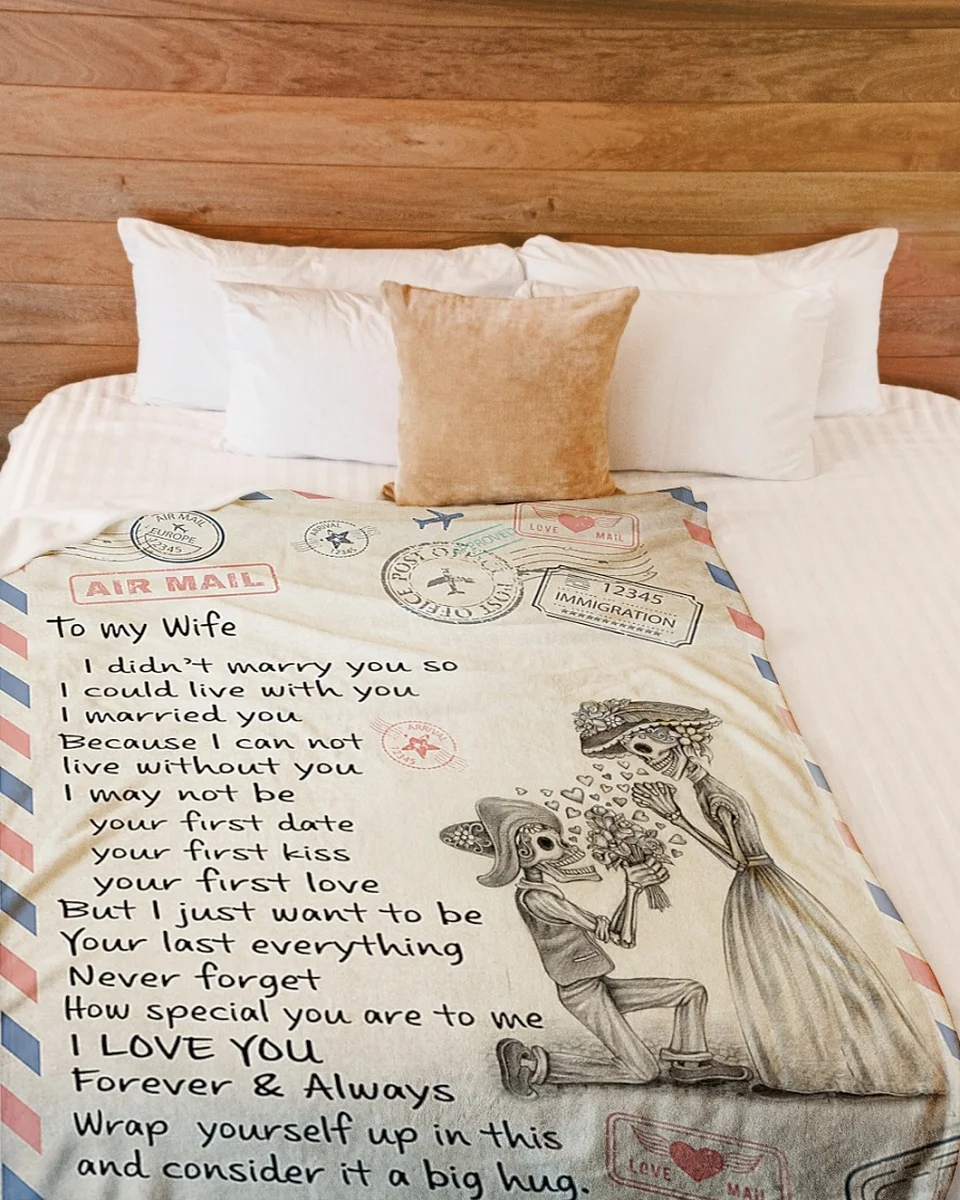 AIR MAIL
EUROPE
12345
ARRIVAL
12345
POST OFFICE
POST OFFICE
LOVE MAIL
12345
IMMIGRATION
AIR MAIL
To my Wife
I didn't marry you so
I could live with you
I married you
Because I can not
live without you
ARRIVAL
12345
I may not be
your first date
your first kiss
your first love
But I just want to be
Your last everything
Never forget
How special you are to me
I LOVE YOU
Forever & Always
Wrap yourself up in this
and consider it a big hug.
LOVE MAIL